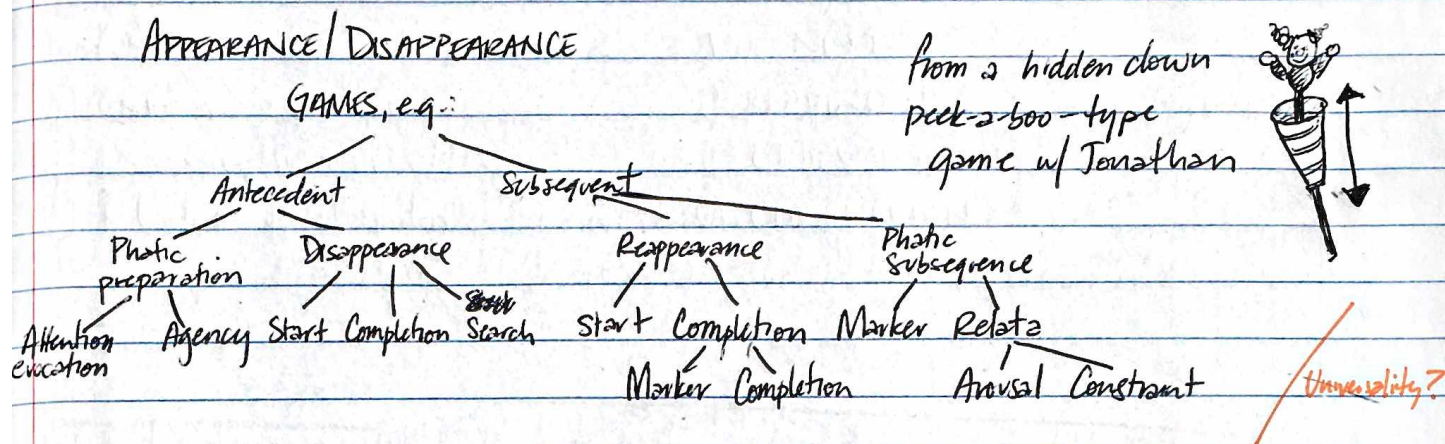 APPEARANCE/DISAPPEARANCE
GAMES, e.g.:
from a hidden clown
peek-a-boo-type
game w/ Jonathan
Antecedent Subsequent
Phatic preparation Disappearance Reappearance Phatic Subsequence
Attention evocation Agency Start Completion Search Start Completion Marker Relata
Marker Completion Arousal Constraint
Universality?